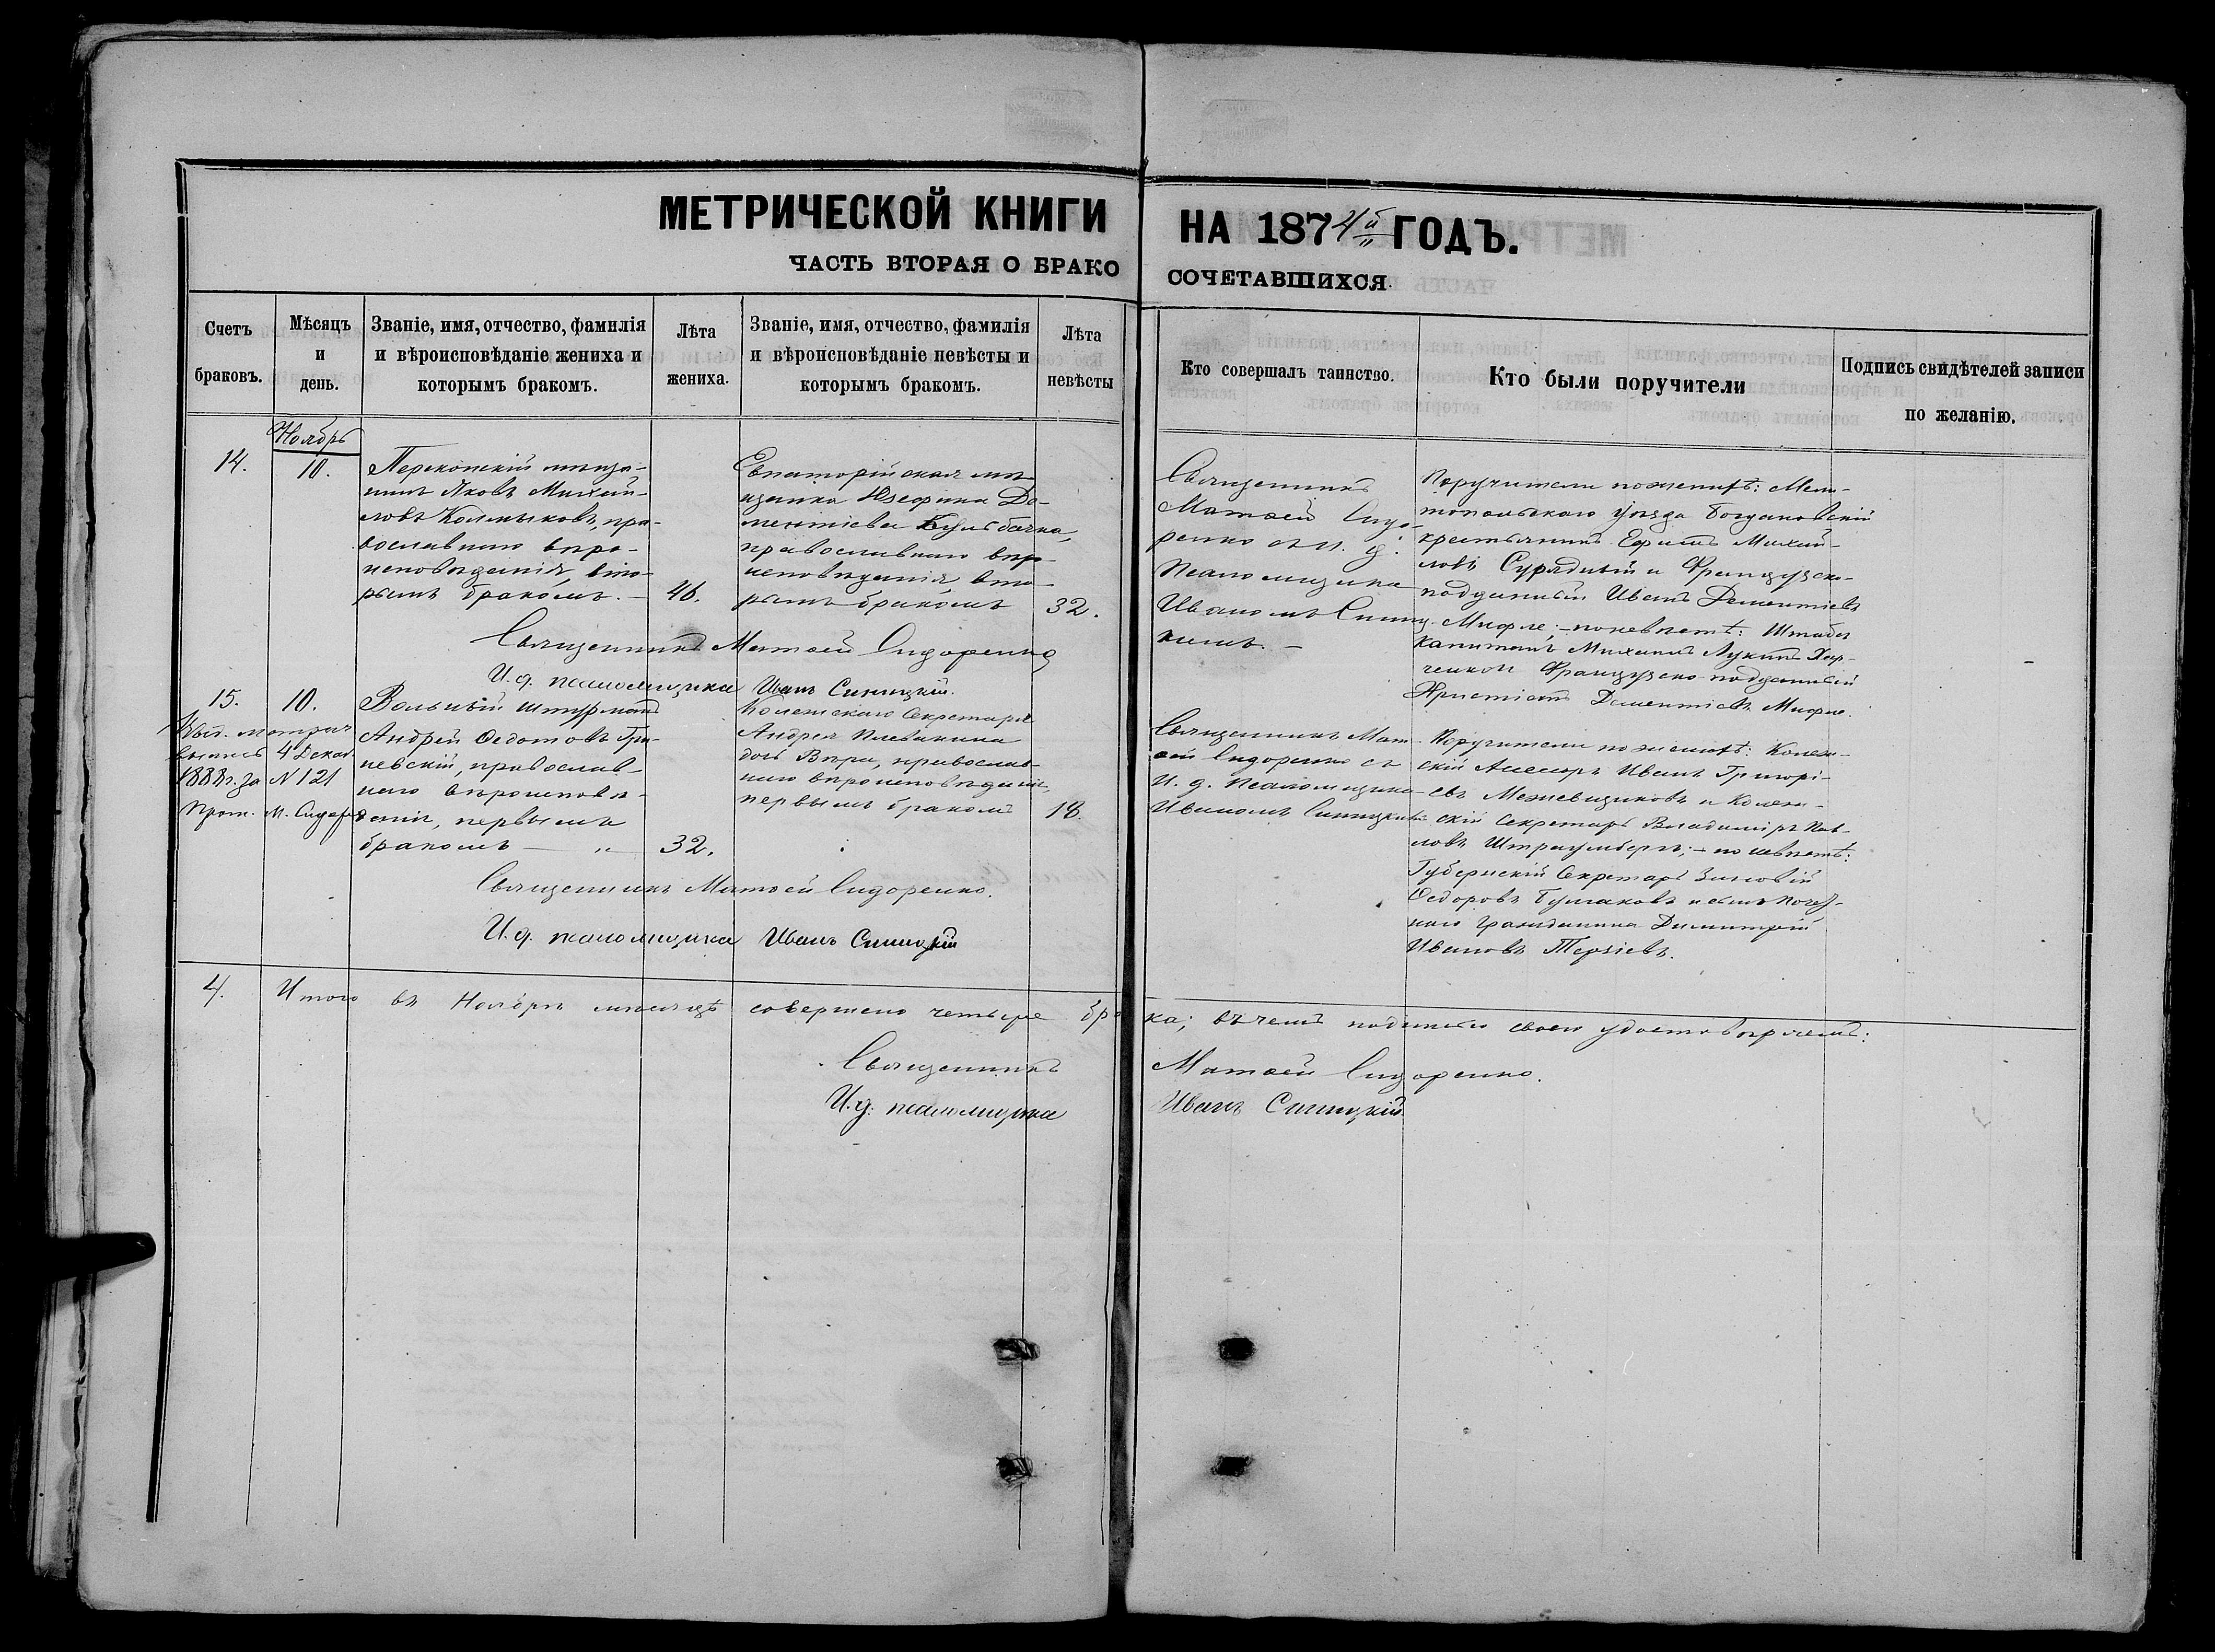 МЕТРИЧЕСКОЙ КНИГИ НА 1874й ГОДЪ.
ЧАСТЬ ВТОРАЯ О БРАКОСОЧЕТАВШИХСЯ.
Счетъ браковъ.
Мѣсяцъ и день.
Званіе, имя, отчество, фамилія и вѣроисповѣданіе жениха и которымъ бракомъ.
Лѣта жениха.
Званіе, имя, отчество, фамилія и вѣроисповѣданіе невѣсты и которымъ бракомъ.
Лѣта невѣсты
Кто совершалъ таинство.
Кто были поручители
Подпись свидѣтелей записи по желанію.
Ноябрь
14.
10.
Перекопскій мѣща-
нинъ Яковъ Михай-
ловъ Колмыковъ, пра-
вославнаго вѣро-
исповѣданія, вто-
рымъ бракомъ. —
46.
Евпаторійская мѣ-
щанка Юзефина До-
ментіева Бульбачка,
православнаго вѣро-
исповѣданія вто-
рымъ бракомъ
32.
Священникъ
Матѳей Сидо-
ренко съ И. д.
Псаломщика
Иваномъ Синиц-
кимъ. —
Поручители по женихѣ: Мели-
топольскаго уѣзда Богдановскій
крестьянинъ Ефимъ Михай-
ловъ Сурядный и Французско-
подданный Иванъ Дементіевъ
Мифле; — по невѣстѣ: Штабсъ
Капитанъ Михаилъ Лукинъ
и Французско-подданный
Христіанъ Дементіевъ Мифле.
Священникъ Матѳей Сидоренко
И. д. псаломщика Иванъ Синицкій.
15.
10.
Выд. метрич.
выпись 4 Декаб.
1888 г. за N 121
Прот. М. Сидор.
Вольный штурманъ
Андрей Ѳедотовъ Гри-
невскій, православ-
наго вѣроисповѣ-
данія, первымъ
бракомъ — „
32.
Колежскаго Секретаря
Андрея Плевакина
дочь Вѣра, православ-
наго вѣроисповѣданія,
первымъ бракомъ
18.
Священникъ Мат-
ѳей Сидоренко съ
И. д. Псаломщика
Иваномъ Синицкимъ
Поручители по женихѣ: Колеж-
скій Ассесоръ Иванъ Григорі-
евъ Межевщиковъ и Колеж-
скій Секретарь Владиміръ Пав-
ловъ Штраумбергъ; — по невѣстѣ:
Губернскій Секретарь Зиновій
Ѳедоровъ Булгаковъ и сынъ Почет-
наго Гражданина Димитрій
Ивановъ Терзіевъ.
Священникъ Матѳей Сидоренко.
И. д. псаломщика Иванъ Синицкій
4. Итого въ Ноябрѣ мѣсяцѣ совершено четыре брака; въ чемъ подписью своею удостовѣряемъ:
Священникъ Матѳей Сидоренко.
И. д. псаломщика Иванъ Синицкій.